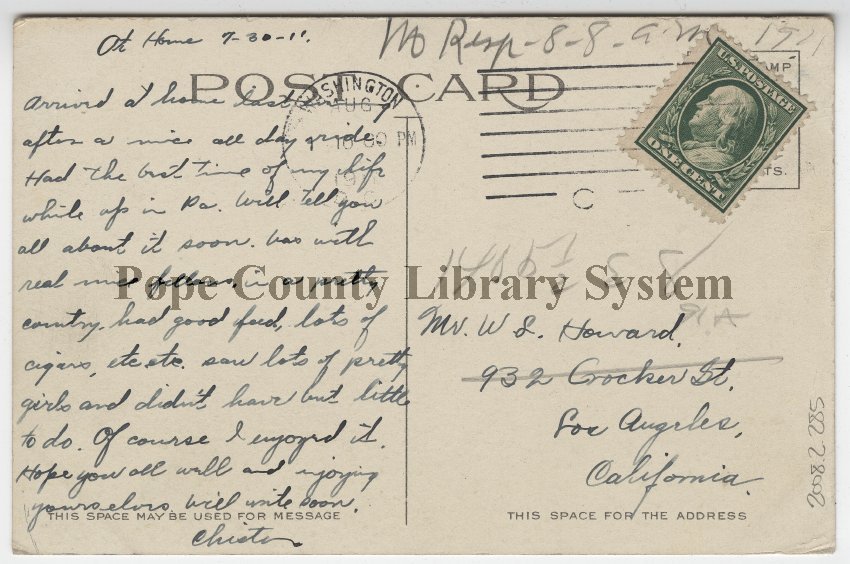 At Home 7-30-11.
No Resp-8-8-
POST CARD
WASHINGTON
AUG
1-10 30 PM
19
C
U.S. POSTAGE
ONE CENT
Arrived at home last
after a nice all day ride
Had the best time of my life
while up in Pa. Will tell you
all about it soon. Was with
real nice fellows, in a pretty
country, had good feed, lots of
cigars, etc, etc. saw lots of pretty
girls and didn't have but little
to do. Of course I enjoyed it.
Hope you all well and injoying
yourselves. Will write soon.
Pope County Library System
Mr. W S. Howard,
932 Crocker St.
Los Angeles,
California.
THIS SPACE MAY BE USED FOR MESSAGE
THIS SPACE FOR THE ADDRESS
2008.2.285